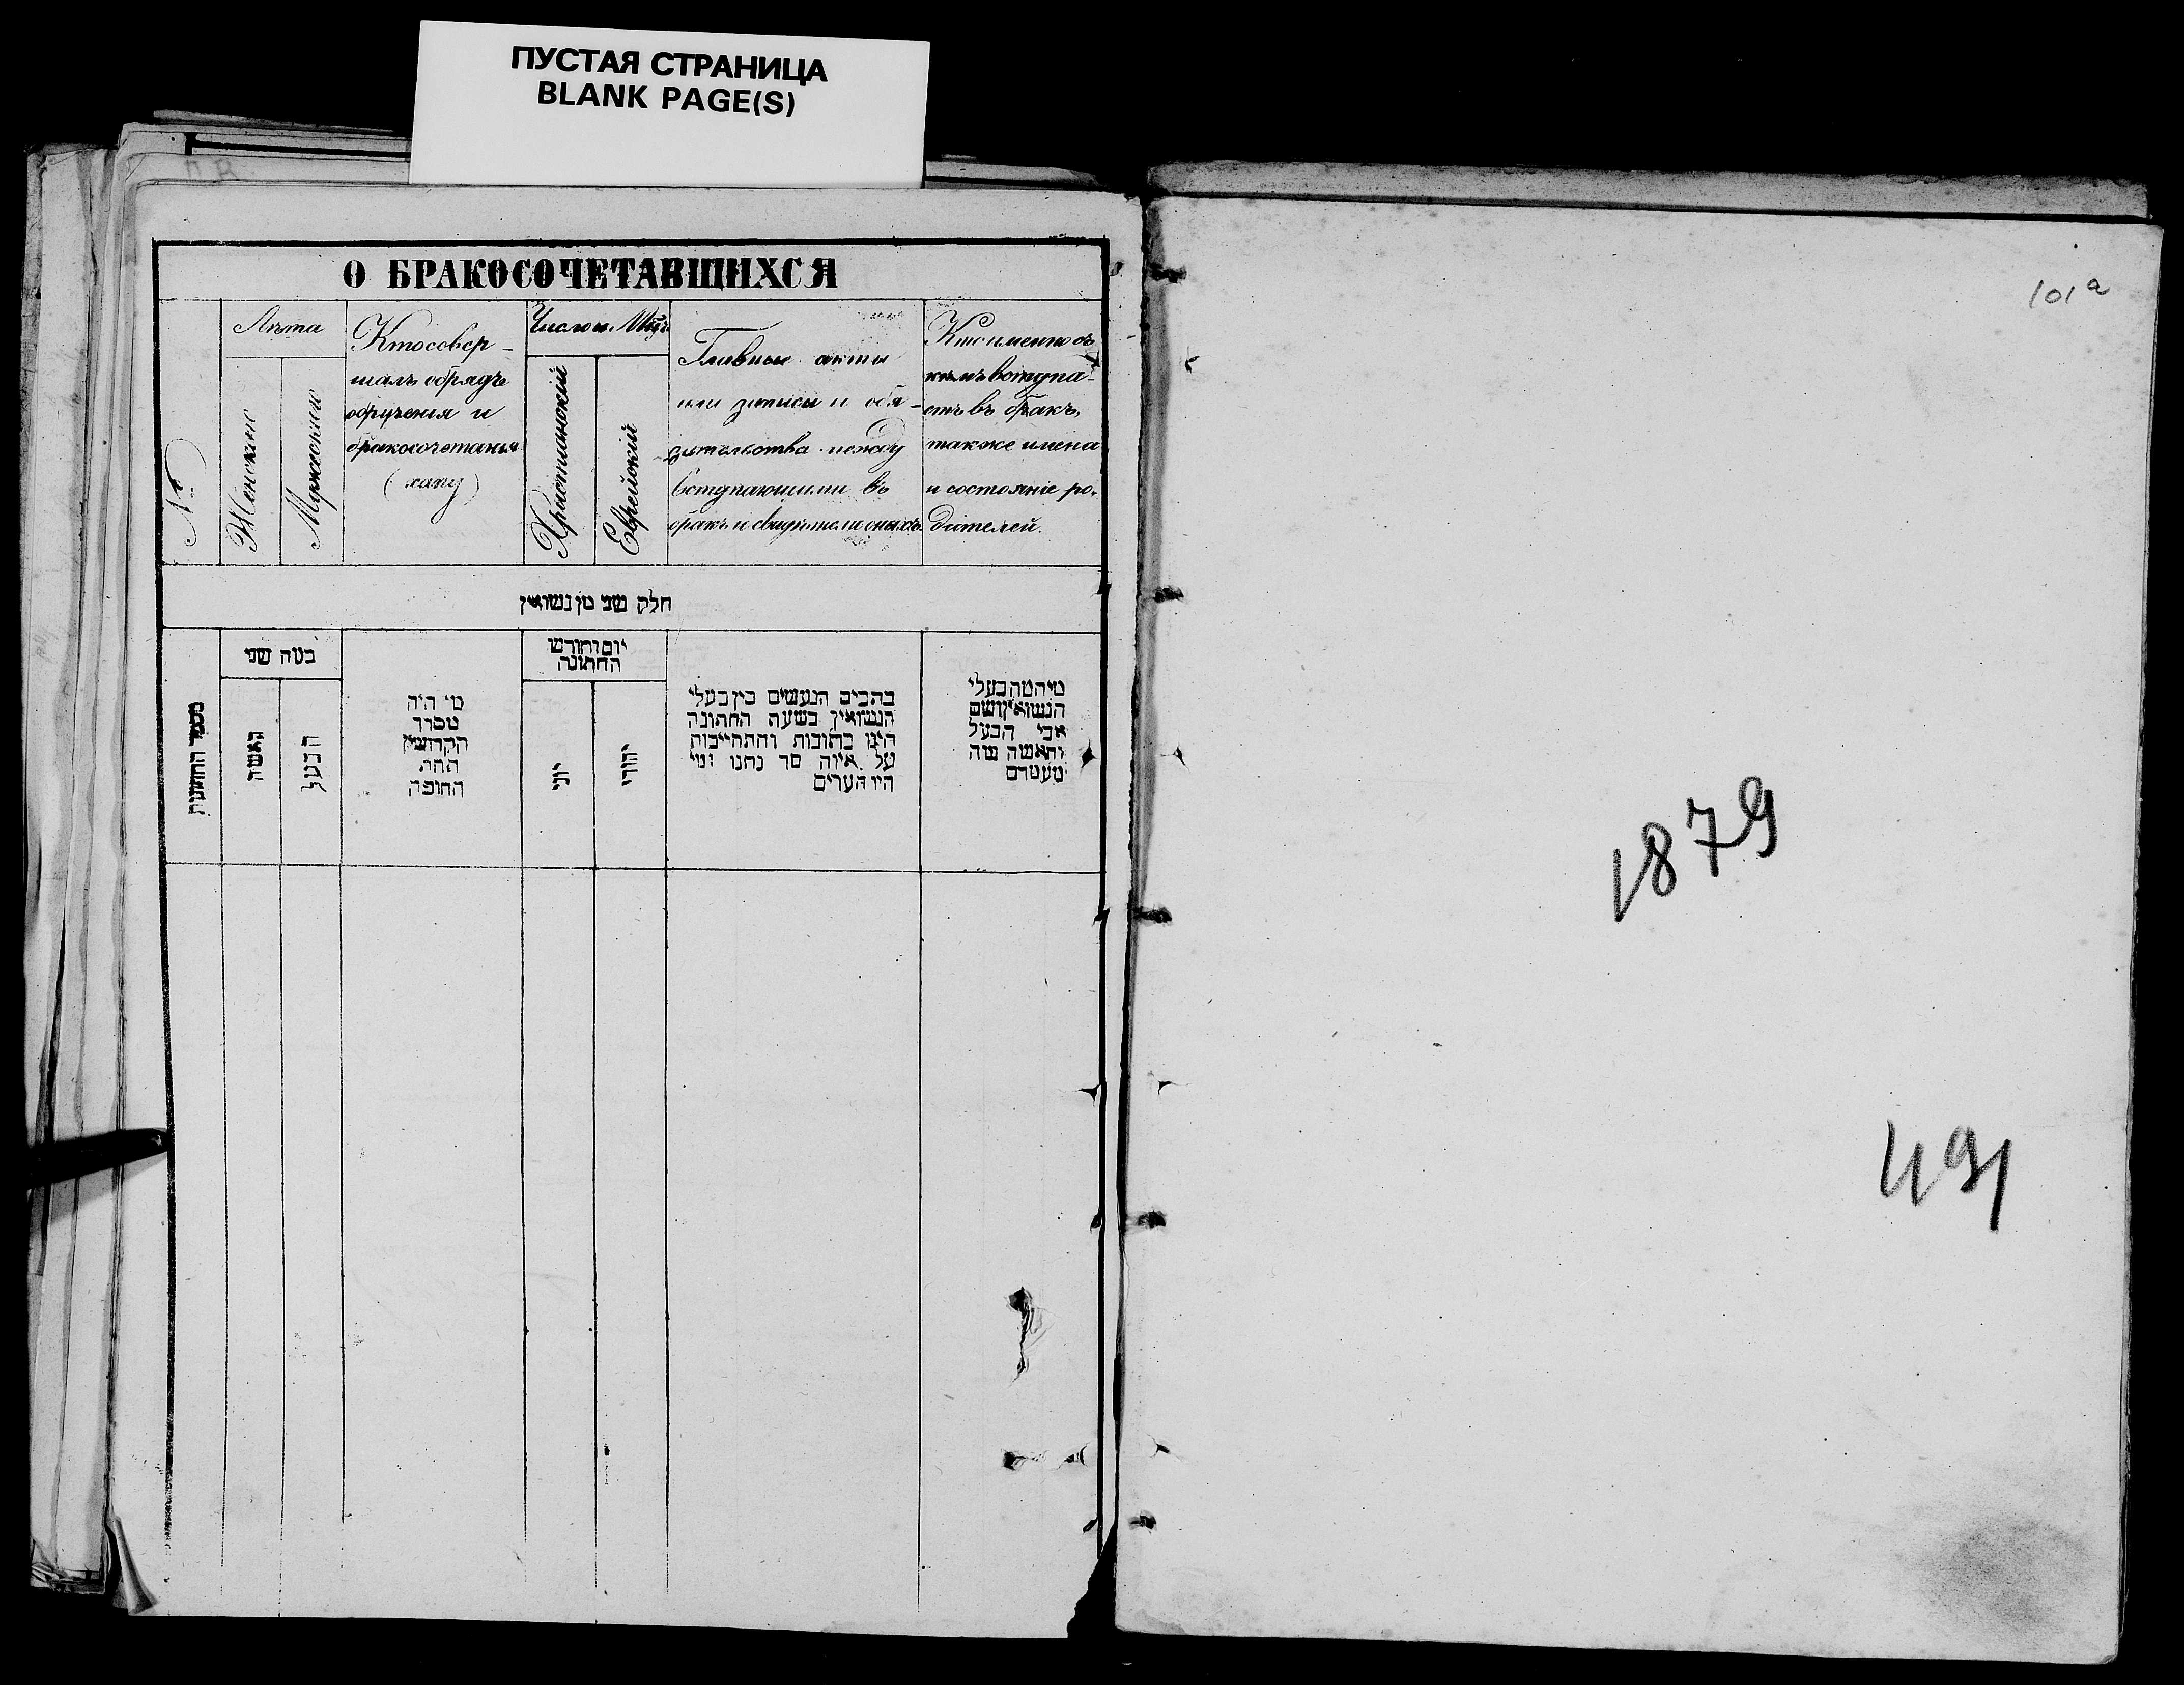 ПУСТАЯ СТРАНИЦА
BLANK PAGE(S)
О БРАКОСОЧЕТАВШИХСЯ
№
Лѣта
Женскіе
Мужескіе
Кто совер-
шалъ обрядъ
обрученія и
бракосочетанья
Число и Мѣц.
Христіанскій
Еврейскій
Главные акты
или записи и обя-
зательства между
вступающими въ
бракъ и свидѣтели оныхъ.
Кто именно съ
кѣмъ вступа-
етъ въ бракъ,
также имена
и состояніе ро-
дителей.
חלק שני מן נשואין
מספר החתונות
במה שני
האשה
הבעל
מי היה
מסדר
הקדושין
תחת
החופה
יום וחודש
החתונה
יוני
יהודי
כתבים הנעשים בין בעלי
הנשואין בשעת החתונה
היינו כתובות והתחייבות
על איזה סך נתנו ומי
היו העדים
מי המה בעלי
הנשואין ושם
אבי הבעל
והאשה ומה
מעמדם
101a
1879
491